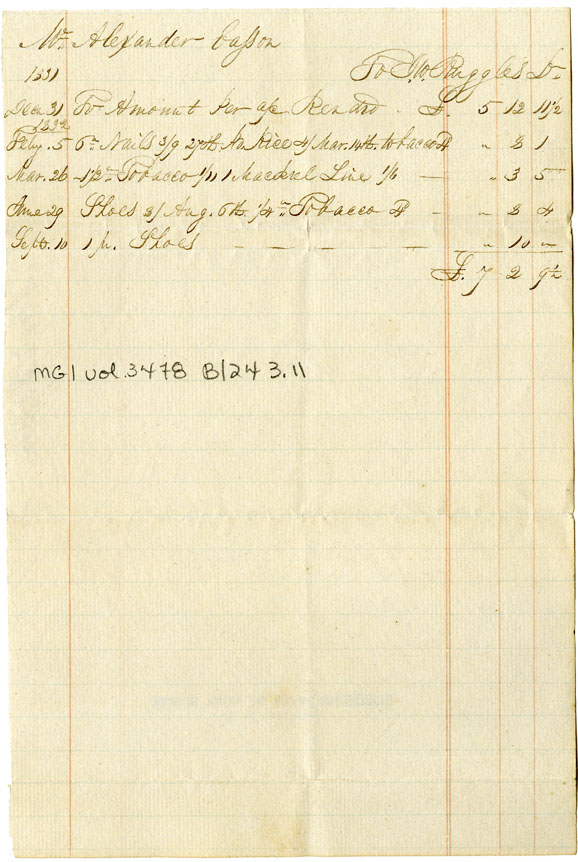 Mr. Alexander Casson
1831 To J.W. Ruggles Dr
Decr. 31 To Amount Per a/c Rend £. 5 12 11 1/2
1832
Feby. 5 6 lb Nails 3/9 27th Rice 4/ Mar. 14th tobacco 4 " 8 1
Mar. 26 1/2 lb Tobacco 1/11 1 Mackrel Line 1/6 — " 3 5
June 29 Shoes 8/ Aug. 6th 1/4 lb Tobacco 4 - " 8 4
Sept. 10 1 pr. Shoes — — — — " 10 "
£. 7 2 9 1/2
MG1 vol. 3478 B/24 3.11